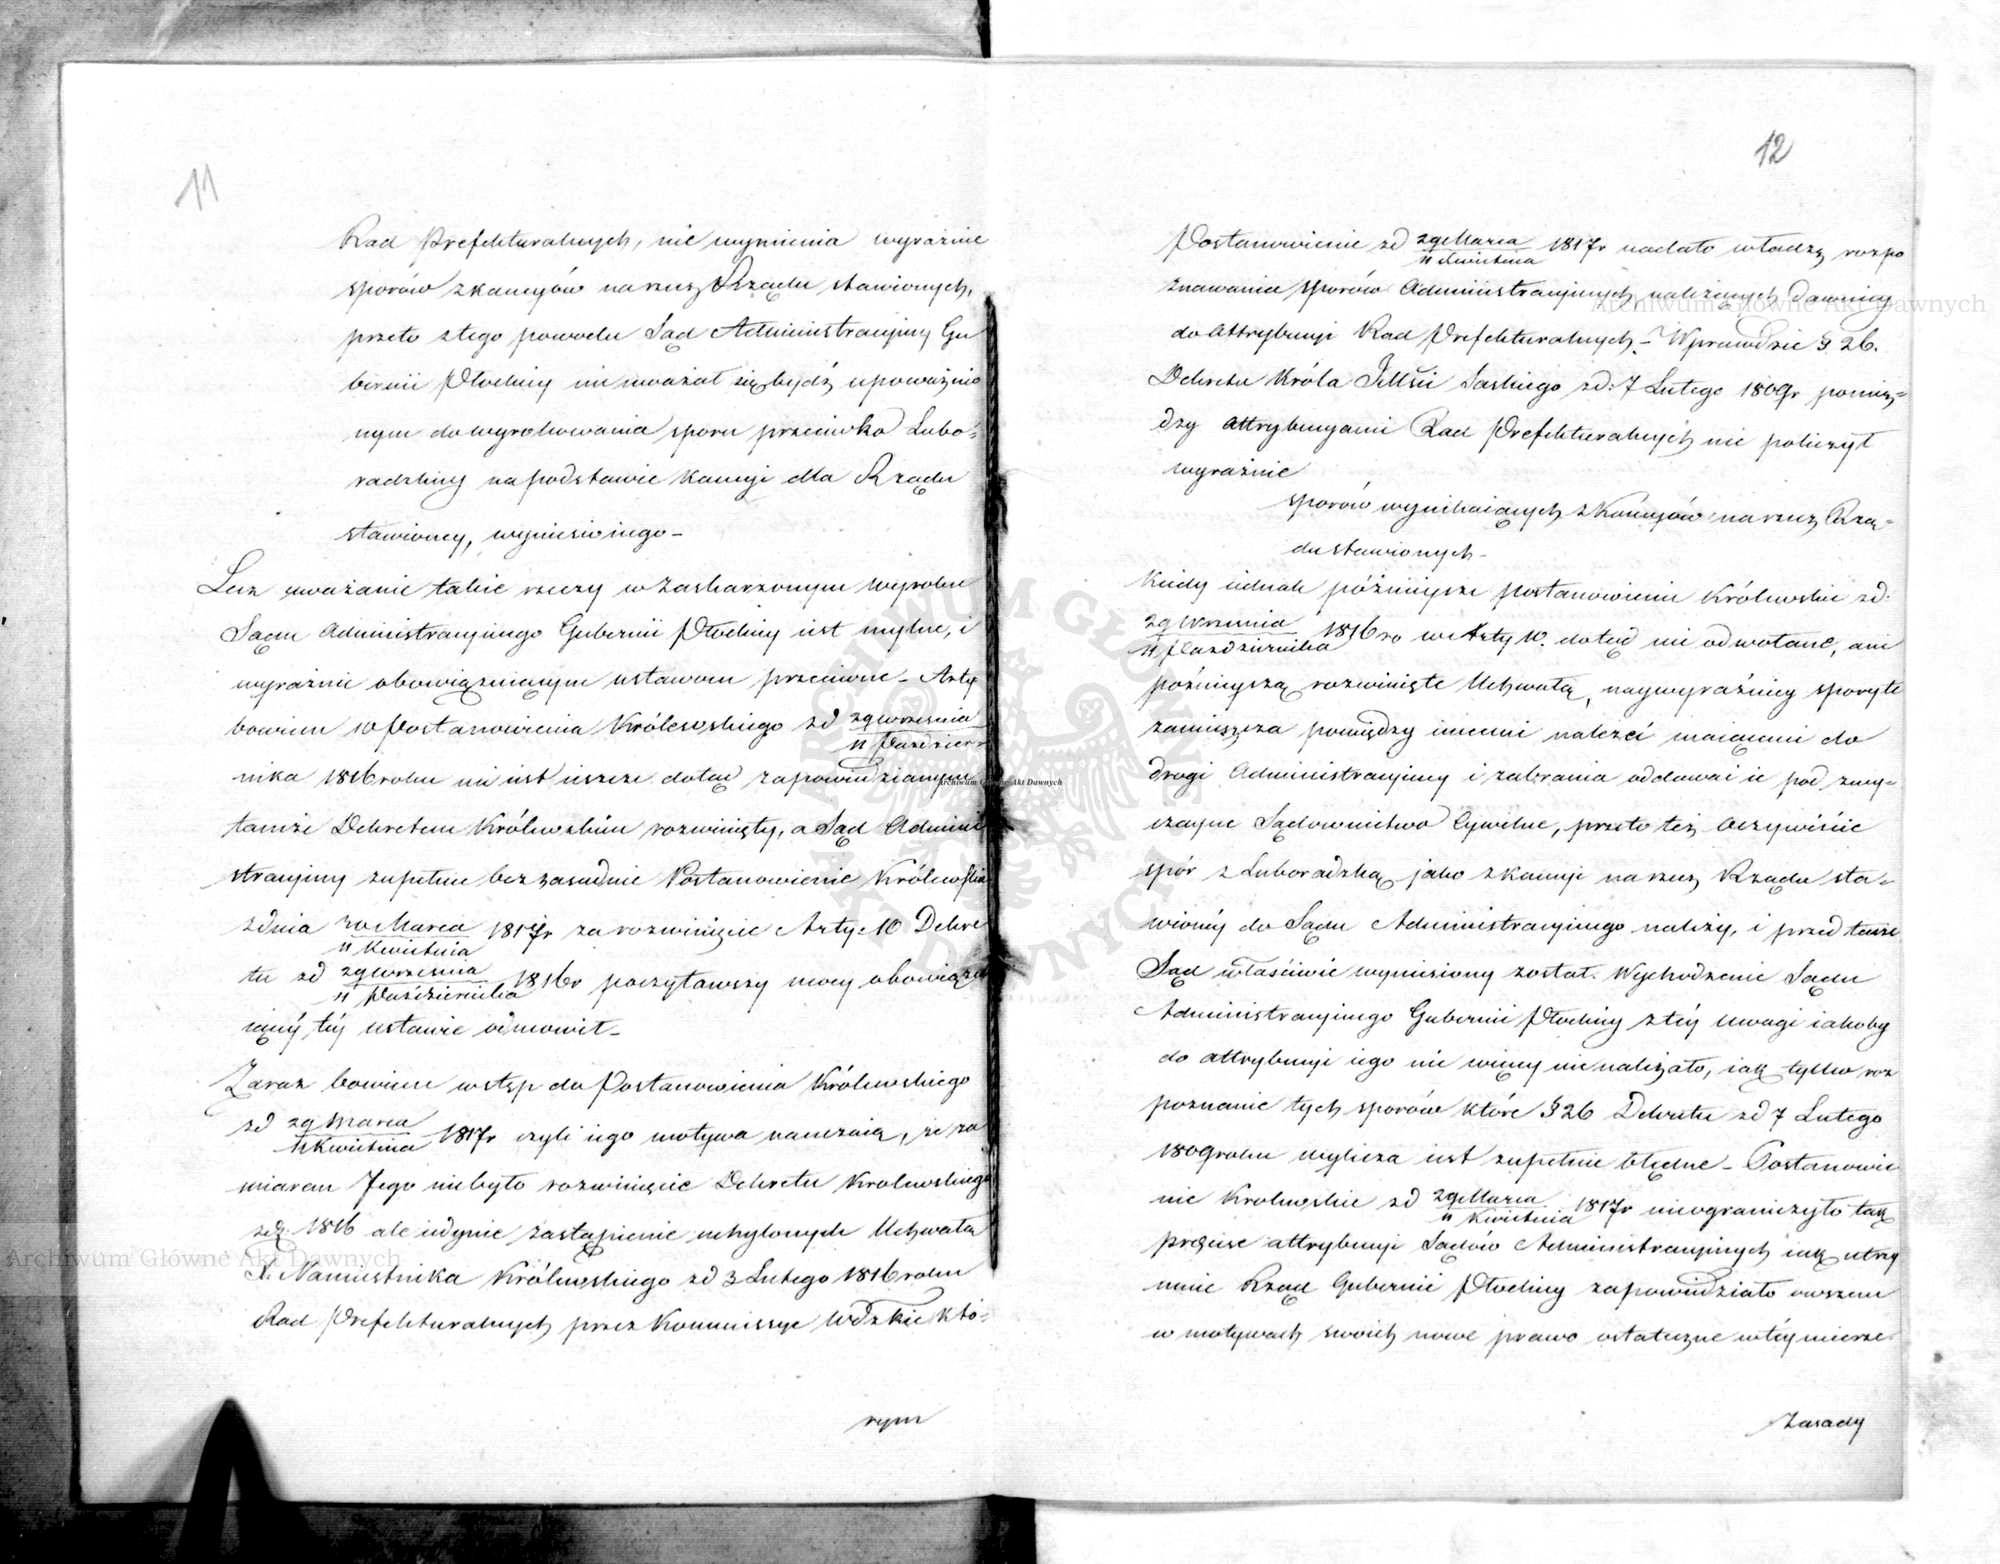 11
Rad Prefekturalnych, nie wymienia wyraźnie
sporów z kaucyów na rzecz Rządu stawionych,
przeto z tego powodu Sąd Administracyiny Gu
bernii Płockiey nie uważał się bydź upoważnio
nym do wyrokowania sporu przeciwko Lubo-
radzkiey na podstawie kaucyi dla Rządu
stawioney, wyniesionego –
Lecz uważanie takie rzeczy w zaskarżonym wyroku
Sądu Administracyinego Gubernii Płockiey iest mylne, i
wyraźnie obowiązuiącym ustawom przeciwne – Arty
bowiem 10 Postanowienia Królewskiego zd 29 Września
11 Paździer
nika 1816 roku nie iest ieszcze dotąd zapowiedzianym
tamże Dekretem Królewskim rozwinięty, a Sąd Admini
stracyiny zupełnie bezzasadnie Postanowienie Królewskie
z dnia 30 Marca
11 Kwietnia
1817r za rozwinięcie Arty. 10 Dekre
tu zd 29 Września
11 Października
1816r poczytawszy mocy obowiązu
iącéy téy ustawie odmówił –
Zaraz bowiem wstęp do Postanowienia Królewskiego
zd 29 Marca
11 Kwietnia
1817r czyli iego motywa nauczaią, że za
miarem Jego nie było rozwinięcie Dekretu Królewskiego
zd: 1816 ale iedynie zastąpienie uchylonych Uchwałą
X. Namiestnika Królewskiego zd 3 Lutego 1816 roku
Rad Prefekturalnych przez Kommissye Wdzkie któ-
rym
12
Postanowienie zd 29 Marca
11 Kwietnia
1817r nadało władzę rozpo
znawania sporów Administracyinych należących dawniey
do Attrybucyi Rad Prefekturalnych – Wprawdzie § 26.
Dekretu Króla JMści Saskiego zd: 7 Lutego 1809r pomię-
dzy Attrybucyami Rad Prefekturalnych nie policzył
wyraźnie
sporów wynikaiących z Kaucyów na rzecz Rzą-
du stawionych –
Kiedy iednak późnieysze postanowienie Królewskie zd:
29 Września
11 Października
1816 ro w Arty 10. dotąd nie odwołane, ani
późnieyszą rozwinięte Uchwałą, naywyraźniey spory te
zamieszcza pomiędzy innemi należeć maiącemi do
drogi Administracyiney i zabrania oddawać ie pod zwy-
czayne Sądownictwo Cywilne, przeto też oczywiście
spór z Luboradzką jako z kaucyi na rzecz Rządu sta-
wionéy do Sądu Administracyinego należy, i przed tenże
Sąd właściwie wyniesiony został. Wychodzenie Sądu
Administracyinego Gubernii Płockiey z téy uwagi iakoby
do attrybucyi iego nic więcey nie należało, iak tylko roz
poznanie tych sporów które § 26 Dekretu zd 7 Lutego
1809 roku wylicza iest zupełnie błędne – Postanowie
nie Królewskie zd 29 Marca
11 Kwietnia
1817r nieograniczyło tak
precise attrybucyi Sądów Administracyinych iak utrzy
muie Rząd Gubernii Płockiey zapowiedziało owszem
w motywach swoich nowe prawo ostateczne w téy mierze
Zasady
Archiwum Główne Akt Dawnych
Archiwum Główne Akt Dawnych
Archiwum Główne Akt Dawnych
ARCHIWUM GŁÓWNE AKT DAWNYCH